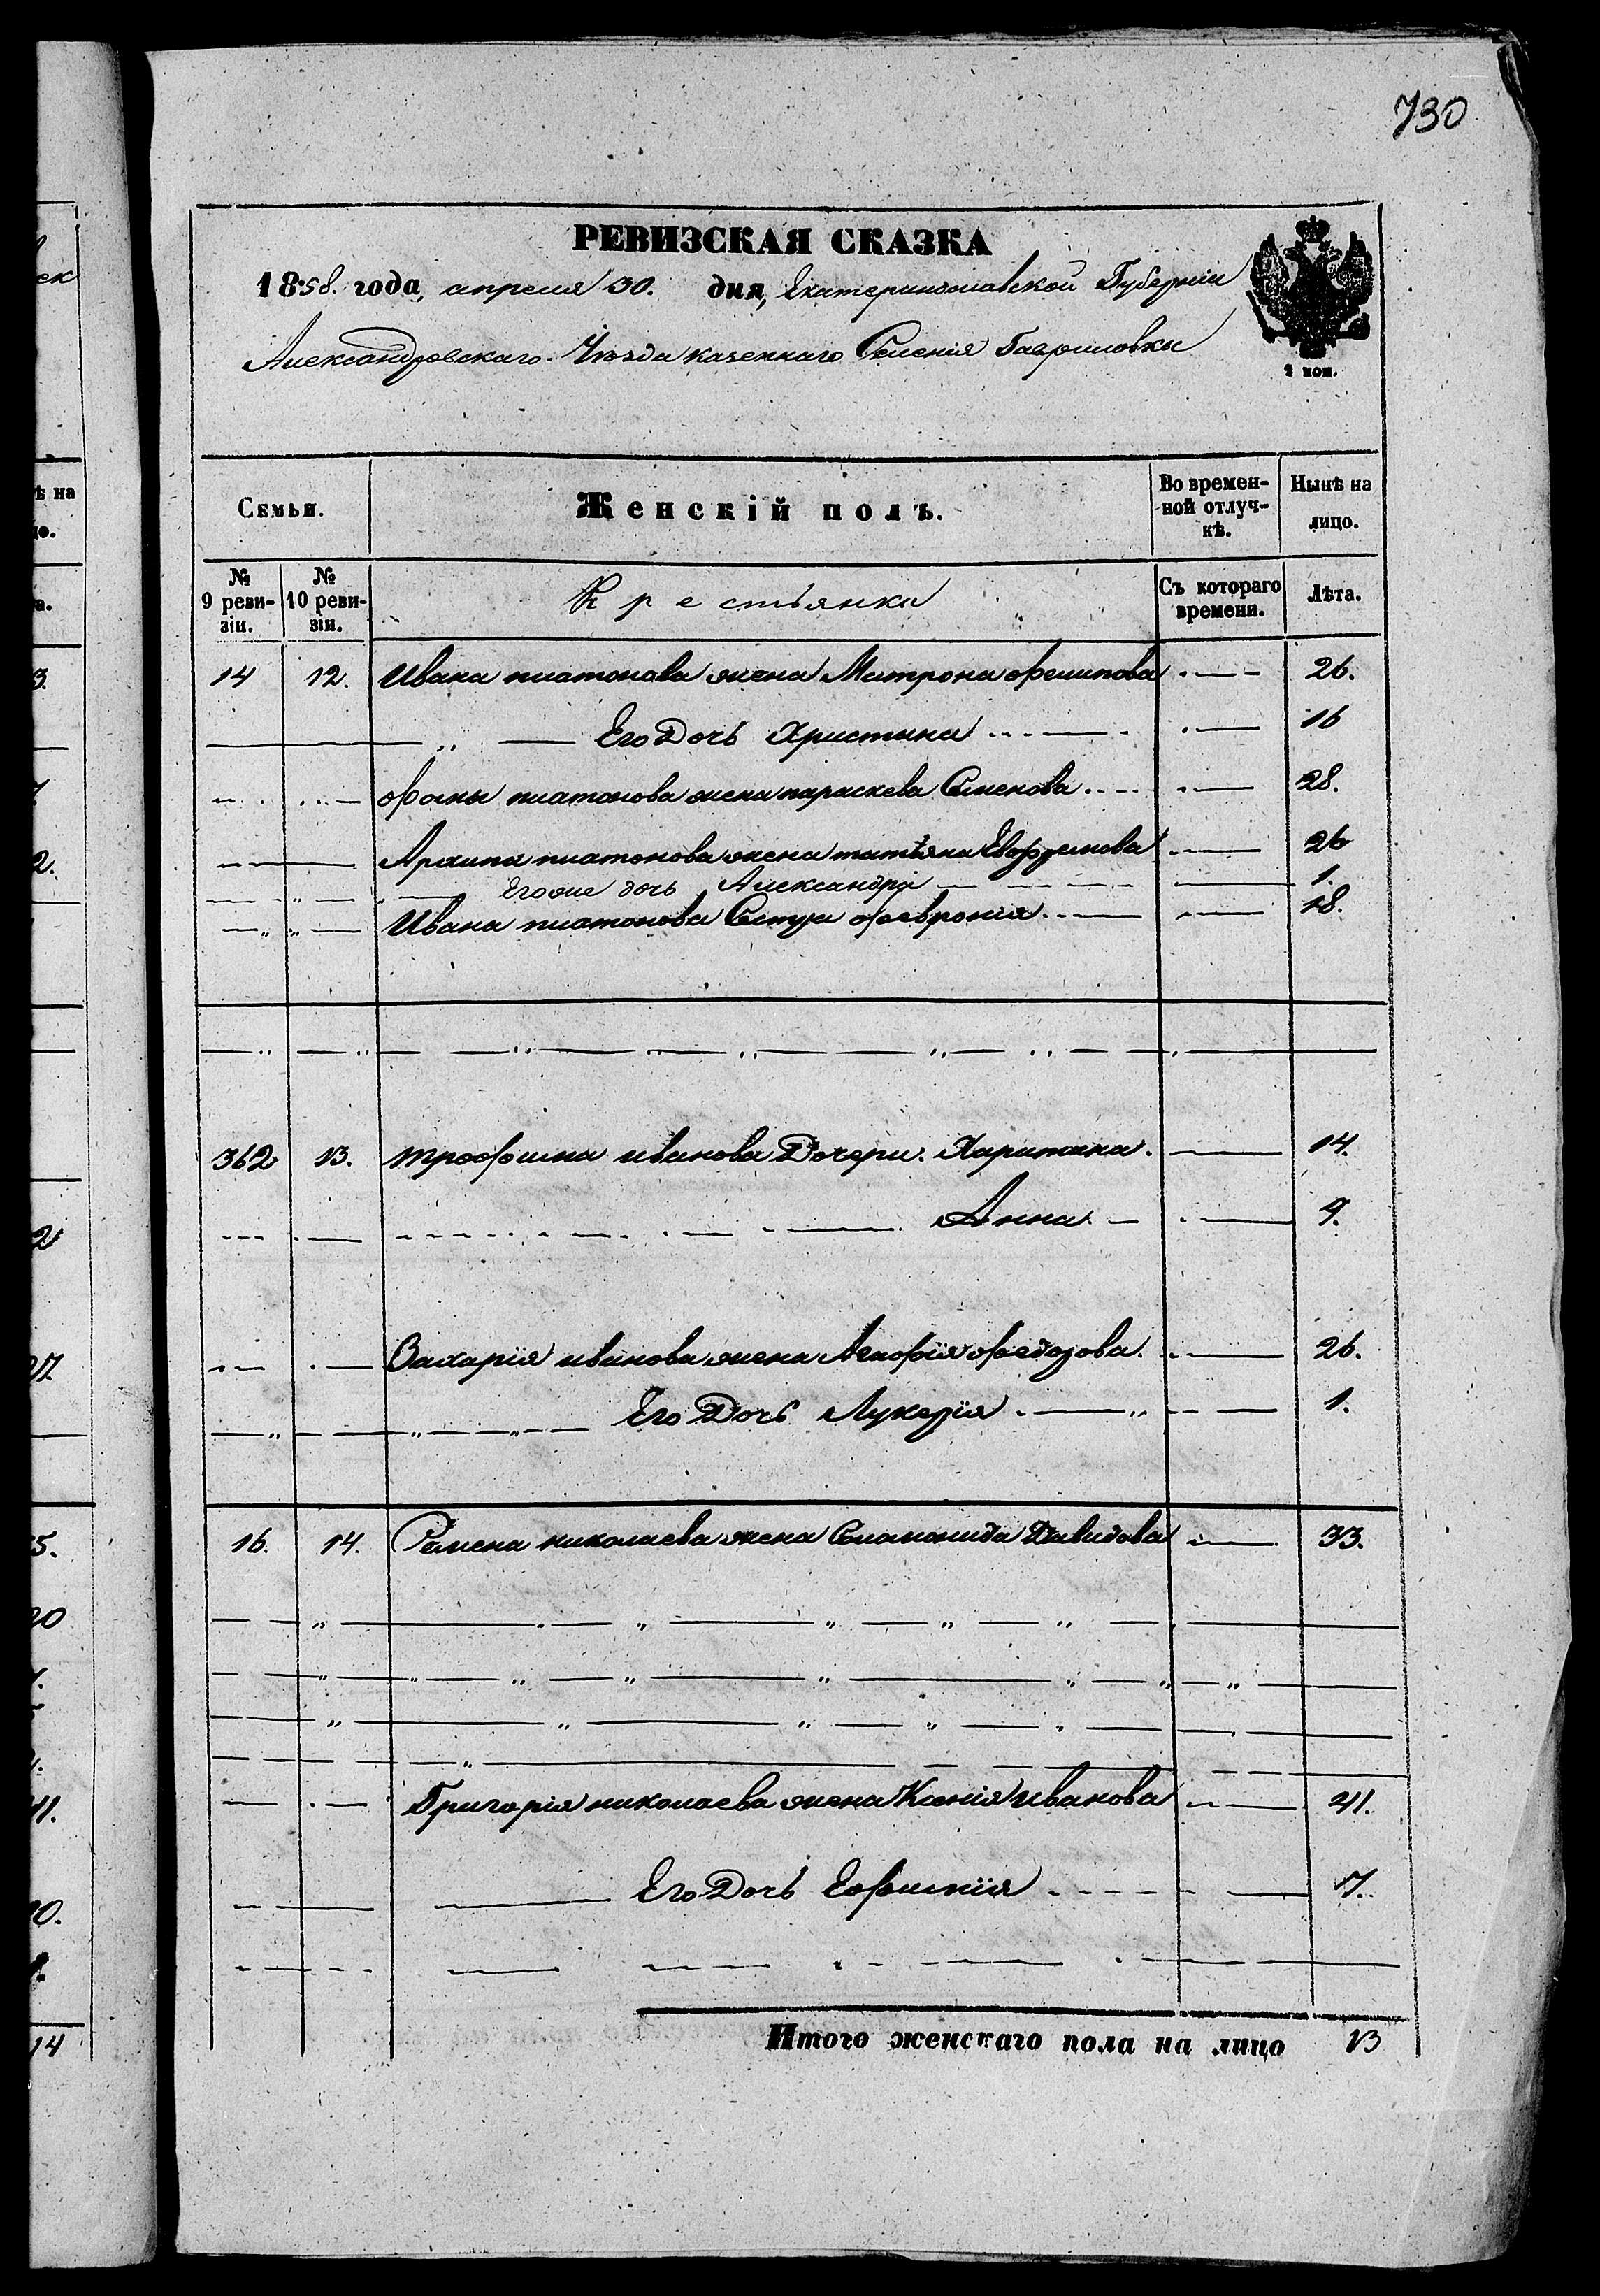 730
РЕВИЗСКАЯ СКАЗКА
1858. года, апреля 30. дня, Екатеринославской Губерніи
Александровскаго Уѣзда казеннаго Селенія Гавриловки
2 коп.
Семьи.
Женскій полъ.
Во времен-
ной отлуч-
кѣ.
Нынѣ на
лицо.
№
9 реви-
зіи.
№
10 реви-
зіи.
Крестьянки
Съ котораго
времени.
Лѣта.
14 12. Ивана платонова жена Матрона филипова 26.
Его Дочь Христина 16
фомы платонова жена параскева Семенова 28.
Архипа платонова жена татьяна 26
Егоже дочь Александра 1.
Ивана платонова Сестра февронія 18.
362 13. трофима иванова Дочери. Харитина. 14.
Анна. 9.
Захарія иванова жена Агафія федорова. 26.
Его Дочь Лукерія 1.
16. 14. Семена николаева жена Соломонида Давидова 33.
Григорія николаева жена Ксенія Иванова 21.
Его Дочь Ефимія 7.
Итого женскаго пола на лицо 13
ек
ѣ на
цо.
а.
3.
7.
2.
2
27.
5.
20
7.
41.
20.
14